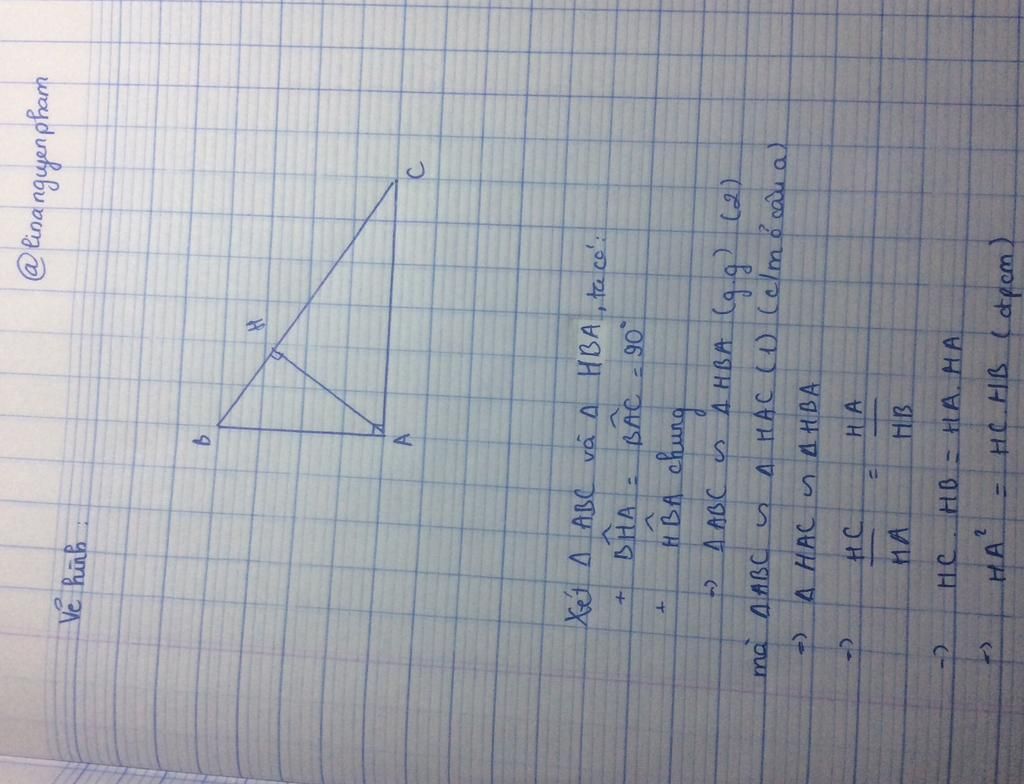 @linanguyenpham
Vẽ hình:
B
H
A
C
Xét Δ ABC và Δ HBA, ta có:
+ BĤA = BÂC = 90°
+ HB̂A chung
=> Δ ABC ∽ Δ HBA (g.g) (2)
mà Δ ABC ∽ Δ HAC (1) (c/m ở câu a)
=> Δ HAC ∽ Δ HBA
=> HC/HA = HA/HB
=> HC . HB = HA . HA
=> HA² = HC . HB (đpcm)